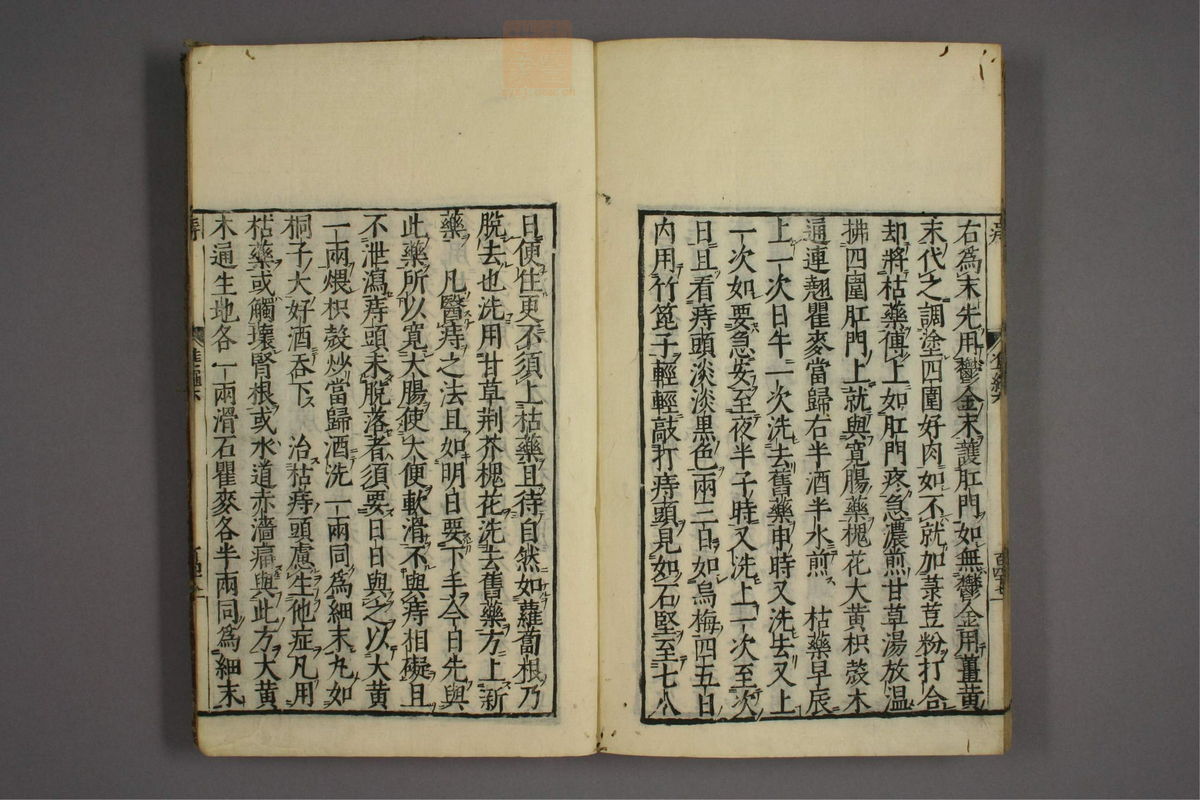 右爲末先用鬱金末護肛門如無鬱金用薑黃
末代之調塗四圍好肉如不就加菉荳粉打合
却將枯藥傅上如肛門疼急濃煎甘草湯放温
拂四圍肛門上就與寛腸藥槐花大黃枳殻木
通連翹瞿麥當歸右半酒半水煎　枯藥早辰
上一次日午一次洗去舊藥申時又洗去又上
一次如要急安至夜半子時又洗上一次至次
日且看痔頭淡淡黒色兩三日如烏梅四五日
内用竹篦子輕輕敲打痔頭見如石堅至七八
日便住更不須上枯藥且待自然如蘿蔔根乃
脱去也洗用甘草荆芥槐花洗去舊藥方上新
藥　凡醫痔之法且如明日要下手今日先與
此藥所以寛大腸使大便軟滑不與痔相礙且
不泄瀉痔頭未脱落者須要日日與之以大黃
一兩煨枳殻炒當歸酒洗一兩同爲細末丸如
桐子大好酒吞下　治枯痔頭慮生他症凡用
枯藥或觸壞腎根或水道赤濇痛與此方大黃
木通生地各一兩滑石瞿麥各半兩同爲細末